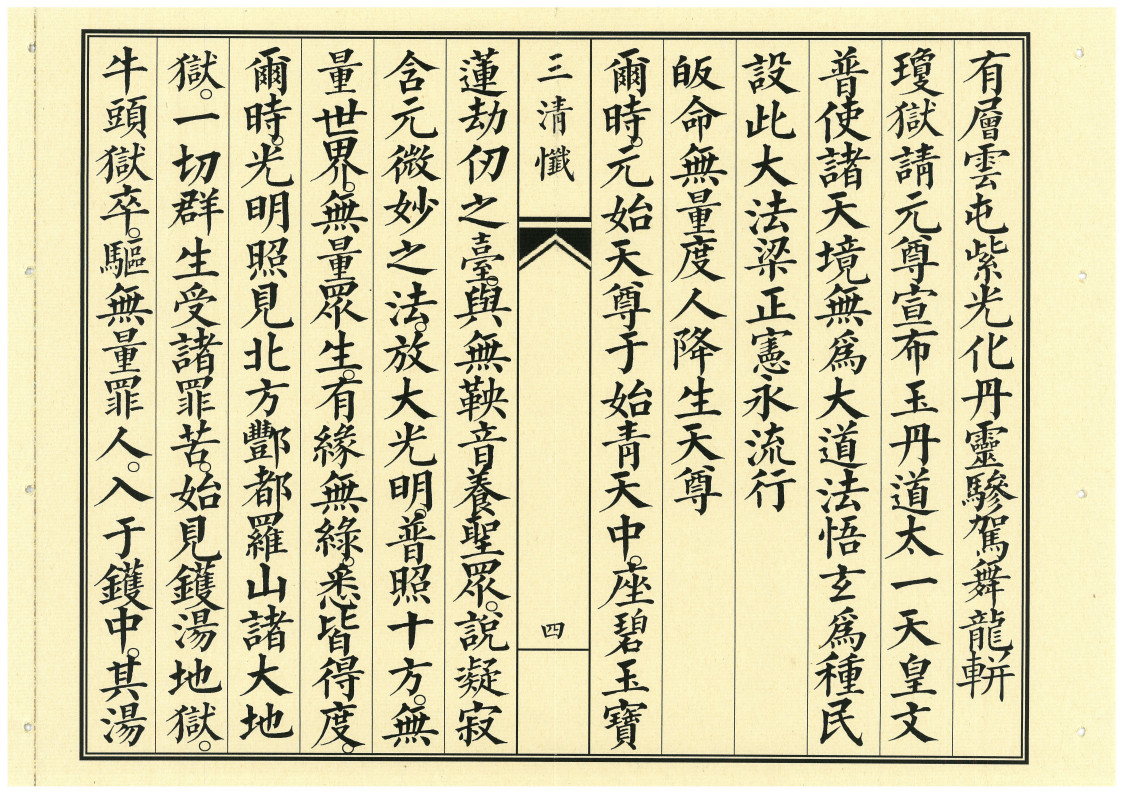 有層雲屯紫光化丹靈驂駕舞龍軿
瓊獄請元尊宣布玉丹道太一天皇文
普使諸天境無爲大道法悟玄爲種民
設此大法梁正憲永流行
皈命無量度人降生天尊
爾時。元始天尊于始青天中。座碧玉寶
三清懺
四
蓮劫仞之臺。與無鞅音養聖眾。說凝寂
含元微妙之法。放大光明。普照十方。無
量世界。無量眾生。有緣無綠。悉皆得度。
爾時。光明照見北方酆都羅山諸大地
獄。一切群生受諸罪苦。始見鑊湯地獄。
牛頭獄卒。驅無量罪人。入于鑊中。其湯